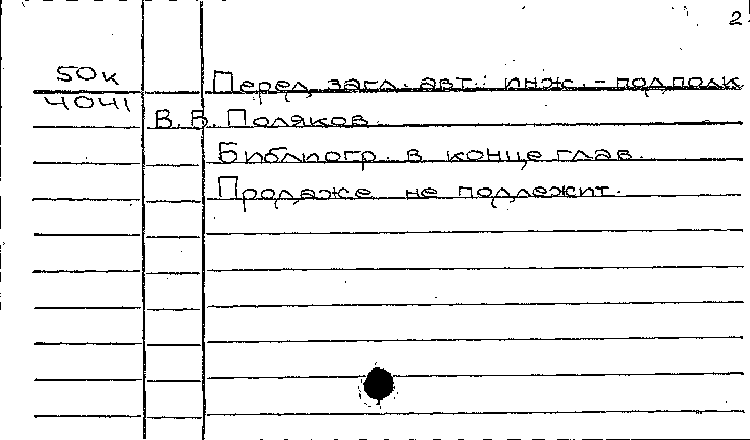 2
50к
4041
Перед загл. авт.: инж.-подполк
В.Б. Поляков.
Библиогр. в конце глав.
Продаже не подлежит.